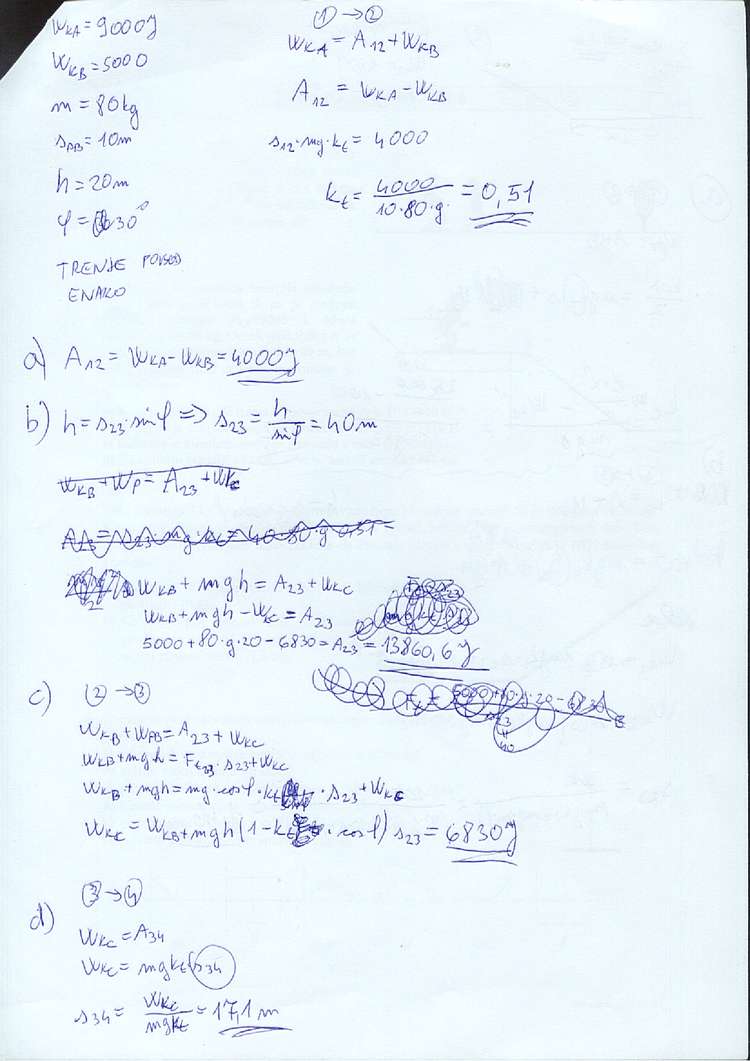 W_KA = 9000 J
W_KB = 5000
m = 80 kg
s_AB = 10 m
h = 20 m
φ = 30°
TRENJE POVSOD
ENAKO
① → ②
W_KA = A_12 + W_KB
A_12 = W_KA - W_KB
s_12 · mg · k_t = 4000
k_t = 4000 / 10·80·g = 0,51
a) A_12 = W_KA - W_KB = 4000 J
b) h = s_23 · sin φ => s_23 = h / sin φ = 40 m
W_KB + W_P = A_23 + W_KC
A_23 = s_23 · mg · k_t = 40 · 80 · g · 0,51 =
W_KB + mgh = A_23 + W_KC
W_KB + mgh - W_KC = A_23
5000 + 80 · g · 20 - 6830 = A_23 = 13860,6 J
c) ② → ③
W_KB + W_PB = A_23 + W_KC
W_KB + mgh = F_t23 · s_23 + W_KC
W_KB + mgh = mg · cos φ · k_t · s_23 + W_KC
W_KC = W_KB + mgh (1 - k_t · cos φ) s_23 = 6830 J
d) ③ → ④
W_KC = A_34
W_KC = mg k_t s_34
s_34 = W_KC / mg k_t = 17,1 m